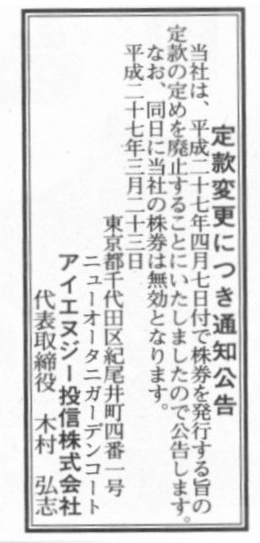 定款変更につき通知公告
当社は、平成二十七年四月七日付で株券を発行する旨の
定款の定めを廃止することにいたしましたので公告します。
なお、同日に当社の株券は無効となります。
平成二十七年三月二十三日
東京都千代田区紀尾井町四番一号
ニューオータニガーデンコート
アイエヌジー投信株式会社
代表取締役　木村　弘志